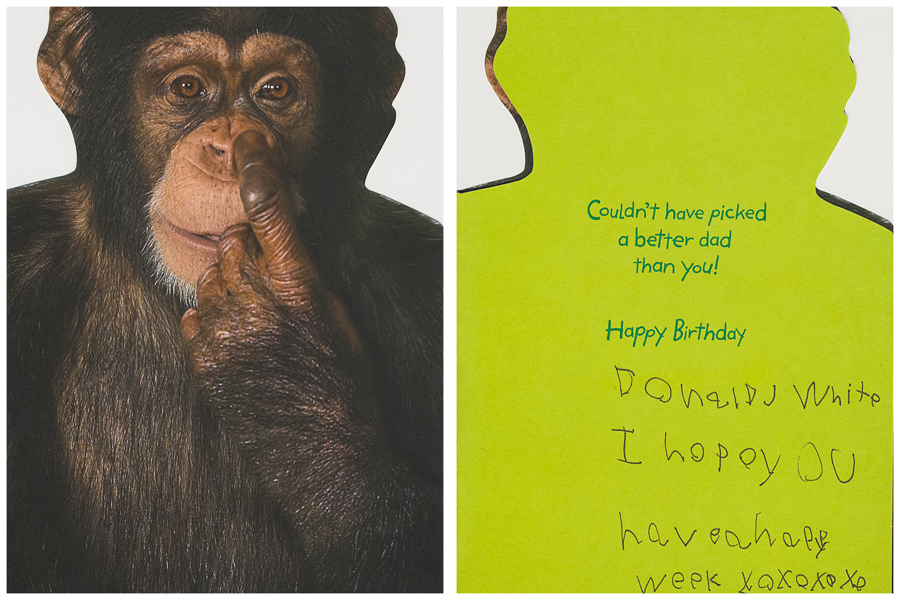 Couldn't have picked
a better dad
than you!
Happy Birthday
Donald J White
I hopey OU
haveahapy
week xoxoxoxo